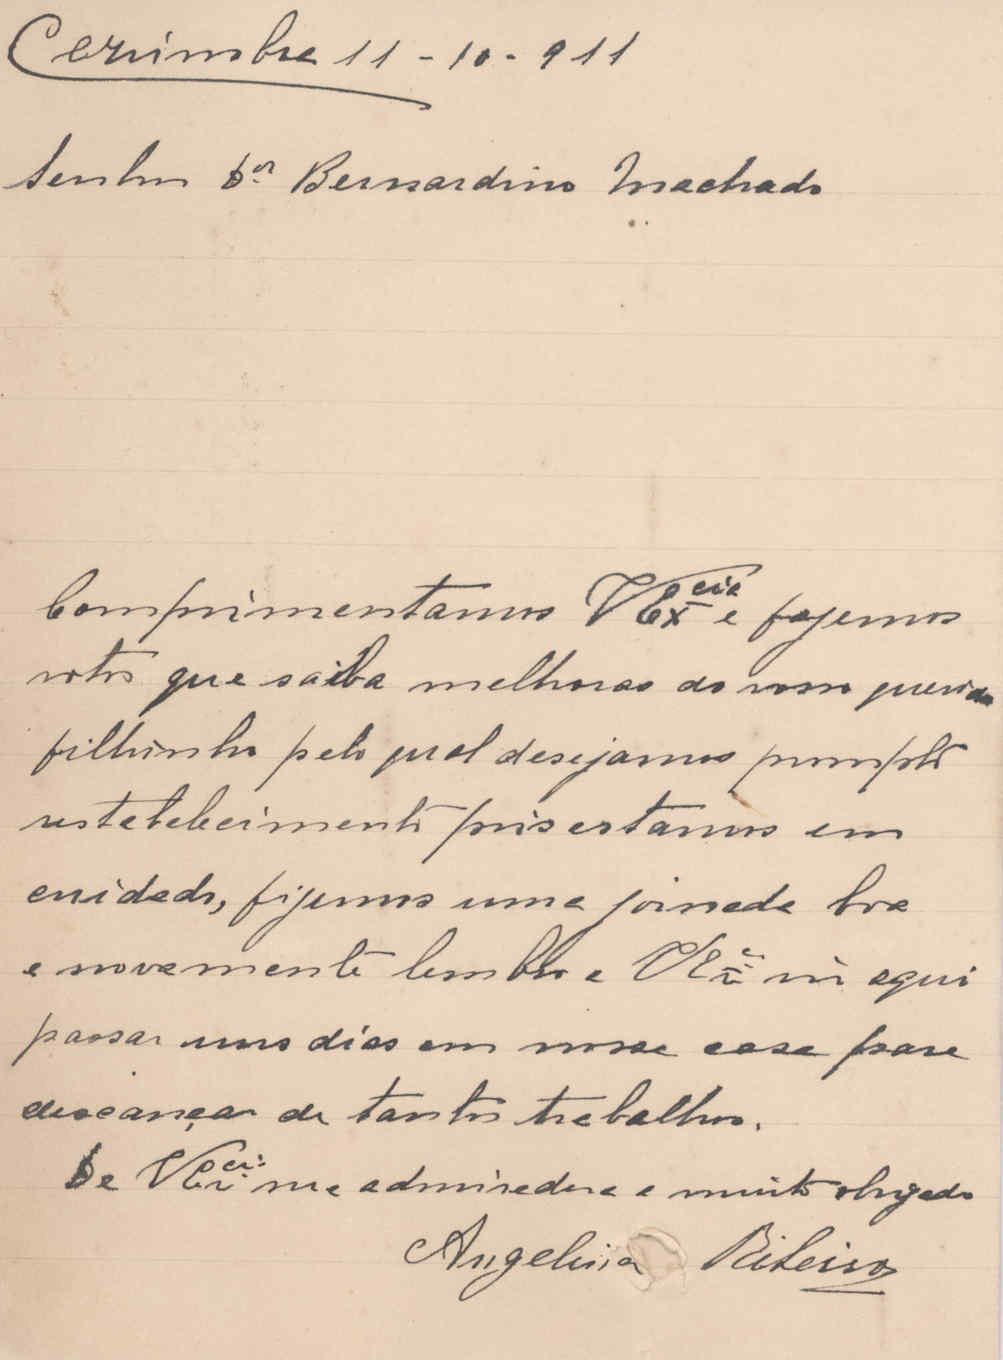 Cerimbra 11-10-911
Senhor Dor Bernardino Machado
Comprimentamos VExcia e fazemos
votos que saiba melhoras do nosso querido
filhinho pelo qual desejamos prompto
restabelecimento pois estamos em
cuidado, fizemos uma jornada boa
e novamente lembro a VExcia vir aqui
passar uns dias em nossa casa para
descançar de tantos trabalhos.
De VExcia mta admiradora e muito obrigada
Angelina Ribeiro